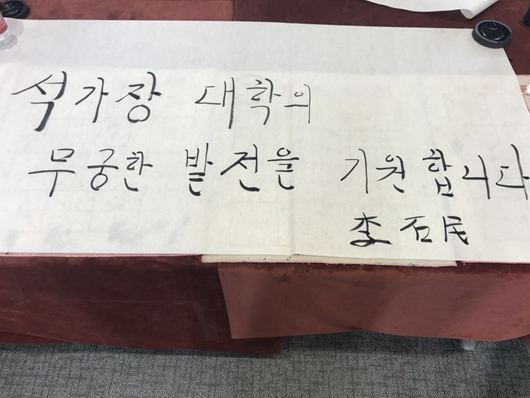 석가장 대학의
무궁한 발전을 기원합니다
李石民